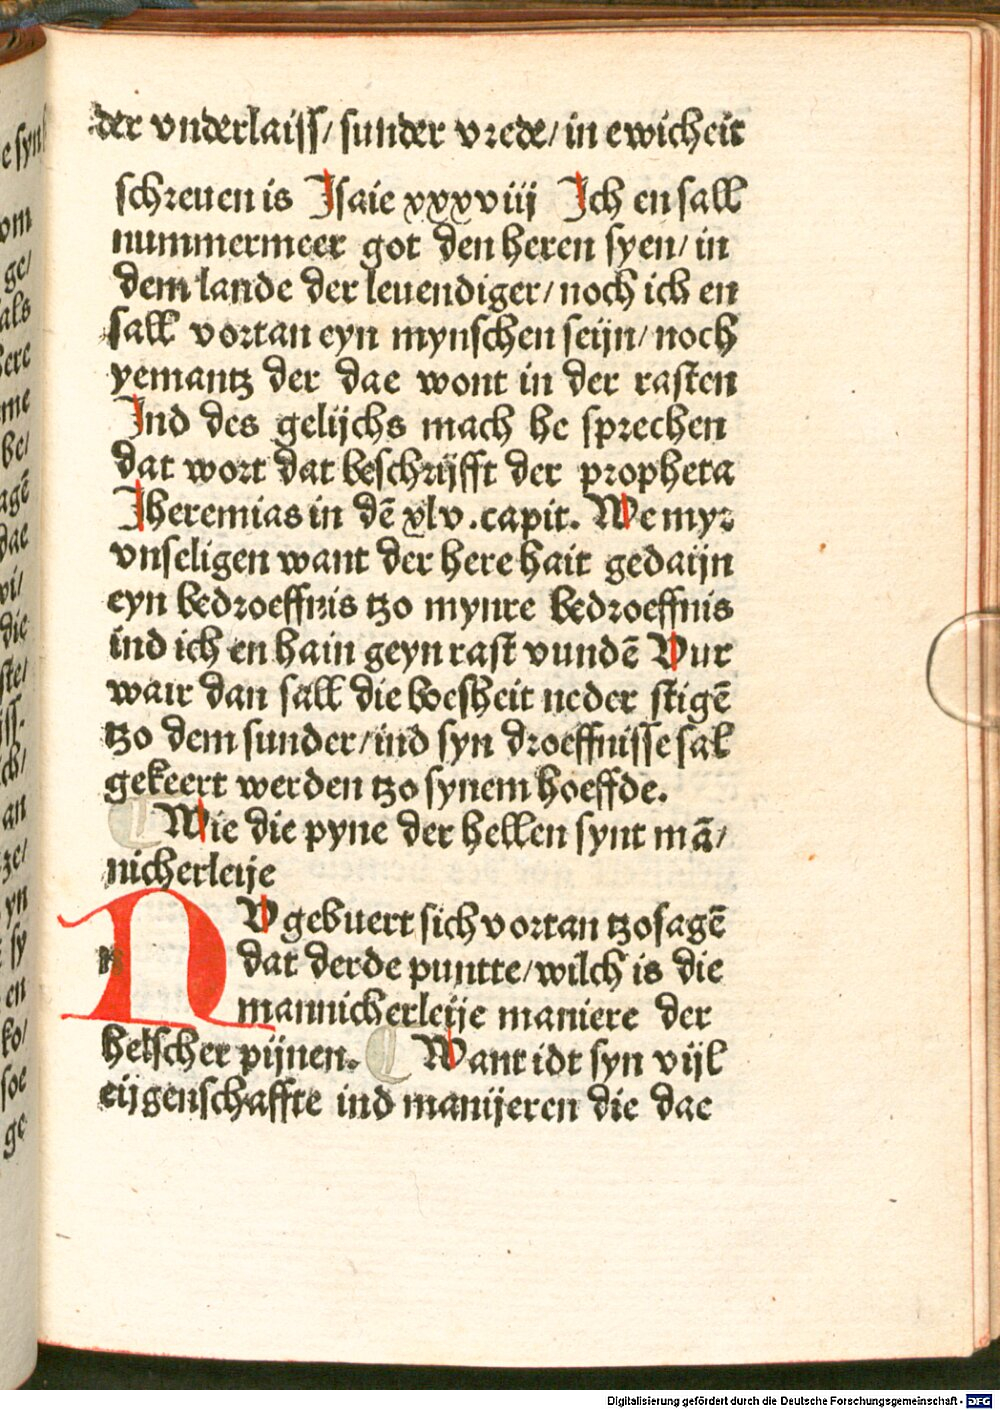 der vnderlaiss/ sunder vrede/ in ewicheit
schreuen is Isaie xxxviij Ich en sall
nummermeer got den heren syen/ in
dem lande der leuendiger/ noch ich en
sall vortan eyn mynschen seijn/ noch
yemantz der dae wont in der rasten
Ind des gelijchs mach he sprechen
dat wort dat beschrijfft der propheta
Iheremias in dē xlv .capit. We myr
vnseligen want der here hait gedaijn
eyn bedroeffnis tzo mynre bedroeffnis
ind ich en hain geyn rast vundē Vur
wair dan sall die boesheit neder stigē
tzo dem sunder/ ind syn droeffnisse sal
gekeert werden tzo synem hoeffde.
Wie die pyne der hellen synt mā/
nicherleije
NV gebuert sich vortan tzo sagē
dat derde puntte/ wilch is die
mannicherleije maniere der
helscher pijnen. Want idt syn vijl
eijgenschaffte ind manijeren die dae
Digitalisierung gefördert durch die Deutsche Forschungsgemeinschaft - DFG